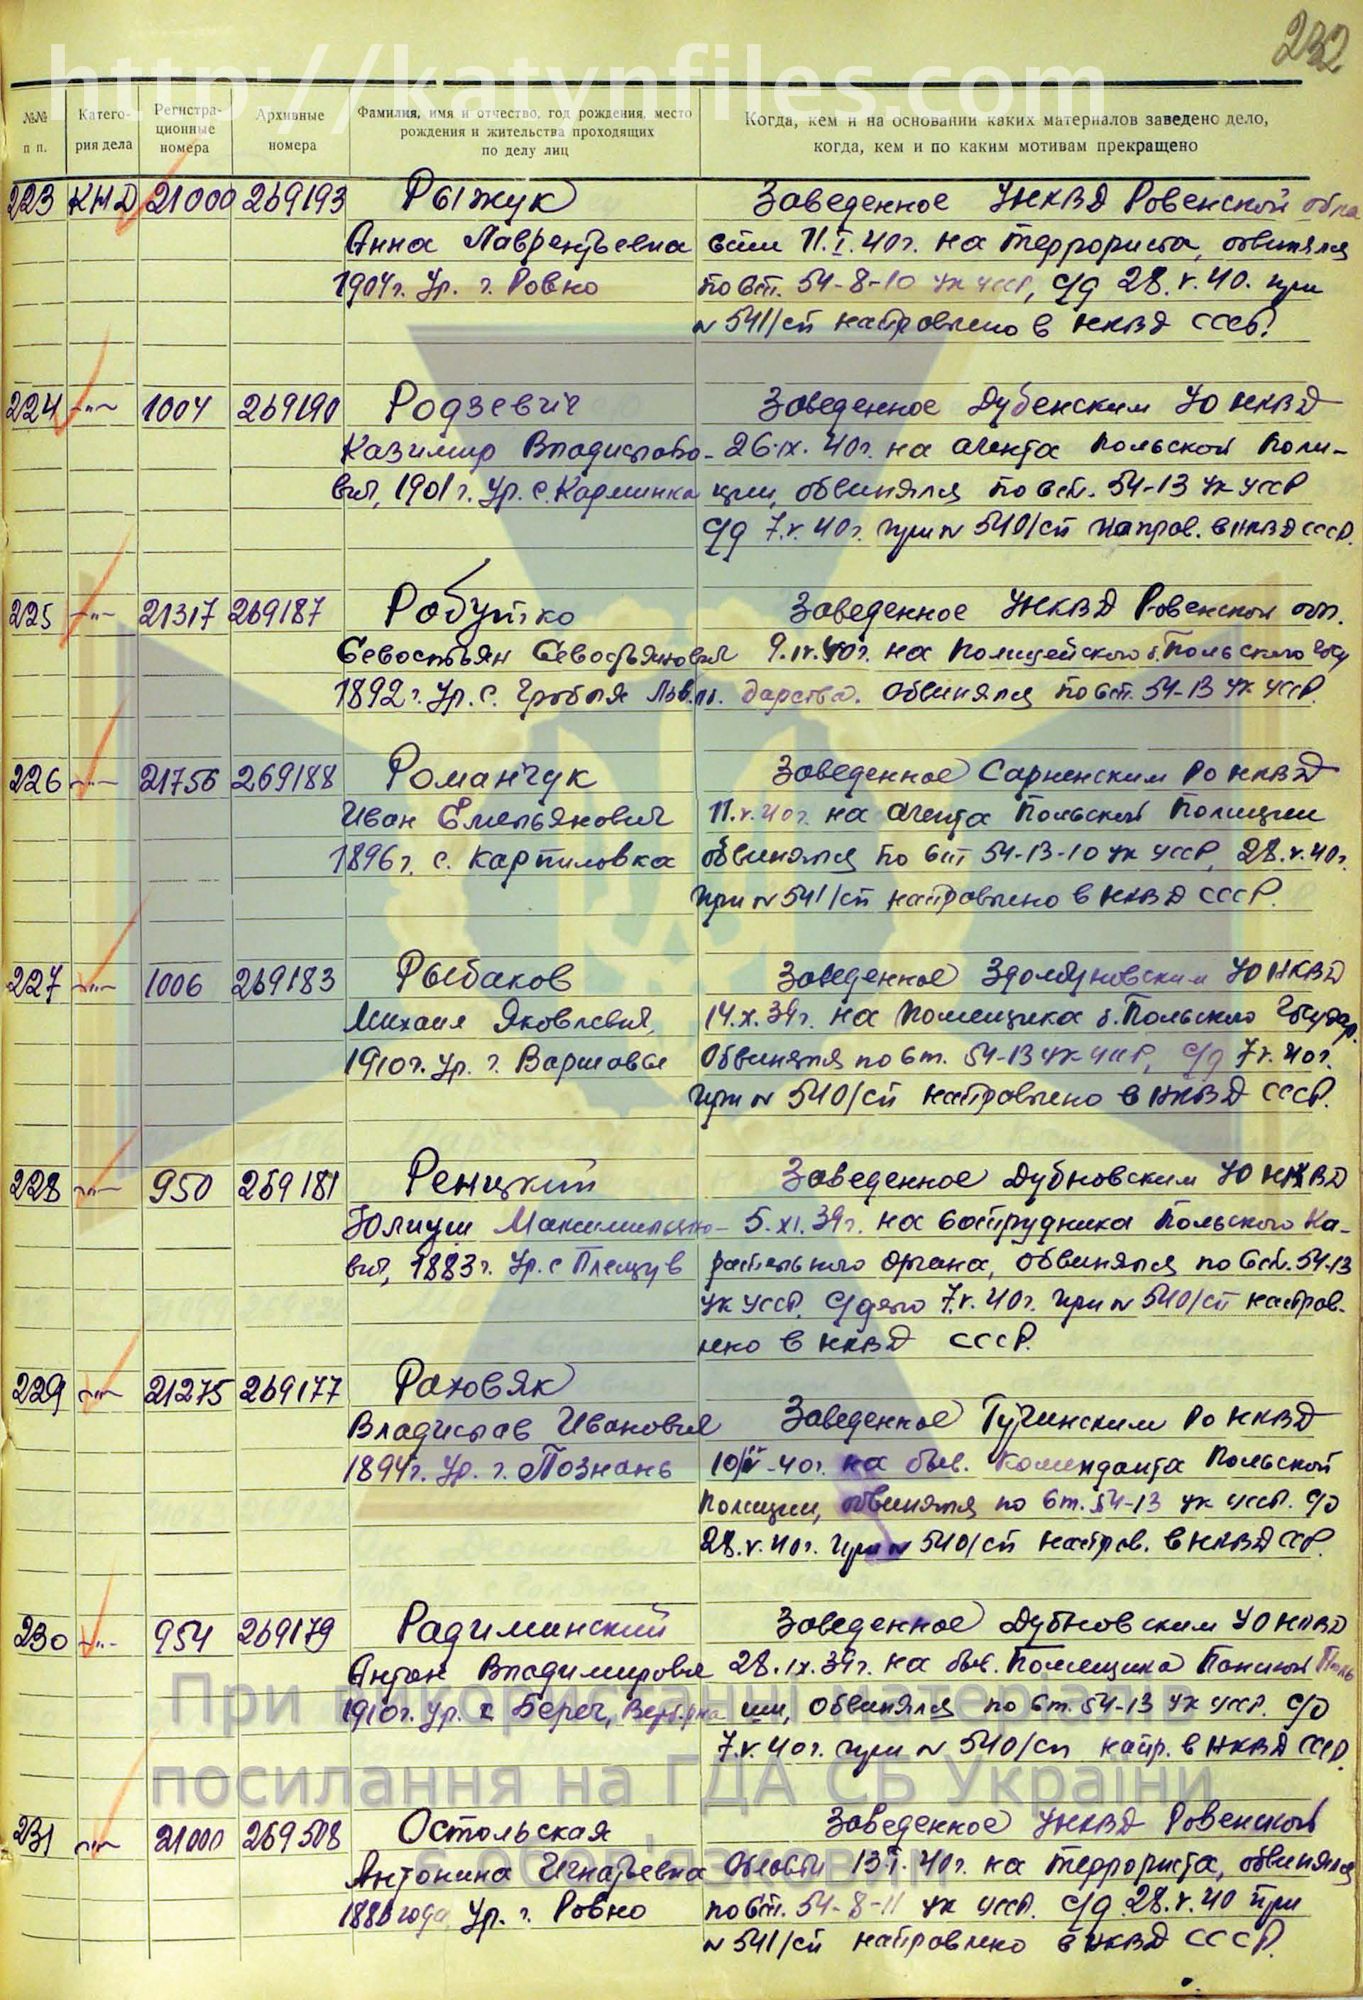 232
http://katynfiles.com
№№ п п.
Катего- рия дела
Регистра- ционные номера
Архивные номера
Фамилия, имя и отчество, год рождения, место рождения и жительства проходящих по делу лиц
Когда, кем и на основании каких материалов заведено дело, когда, кем и по каким мотивам прекращено
223 КНД 21000 269193 Рыжук Заведенное УНКВД Ровенской обла
Анна Лаврентьевна сти 11.I.40г. на террориста, обвинялся
1904г. Ур. г. Ровно по ст. 54-8-10 УК УССР, с/д 28.V.40. при
№ 541/сп направлено в НКВД СССР.
224 -"- 1004 269190 Родзевич Заведенное Дубенским УО НКВД
Казимир Владиславо- 26.IX.40г. на агента Польской Поли-
вич, 1901г. Ур. с. Карминка ции, обвинялся по ст. 54-13 УК УССР
с/д 7.V.40г. при № 540/сп направ. в НКВД СССР.
225 -"- 21317 269187 Робутко Заведенное УНКВД Ровенской обл.
Севостьян Севостьянович 9.IV.40г. на Полицейского б. Польского Госу
1892г. Ур. с. Льв.об. дарства. Обвинялся по ст. 54-13 УК УССР.
226 -"- 21756 269188 Романчук Заведенное Сарненским РО НКВД
Иван Емельянович 11.V.40г. на агента Польской Полиции
1896г. с. Карпиловка обвинялся по ст 54-13-10 УК УССР, 28.V.40г.
при № 541/сп направлено в НКВД СССР.
227 -"- 1006 269183 Рыбаков Заведенное Здолбуновским УО НКВД
Михаил Яковлевич, 14.X.39г. на Помещика б. Польского Государ.
1910г. Ур. г. Варшавы Обвинялся по ст. 54-13 УК УССР, с/д 7.V.40г.
при № 540/сп направлено в НКВД СССР.
228 -"- 950 269181 Реницкий Заведенное Дубновским УО НКВД
Юлиуш Максимильяно- 5.XI.39г. на сотрудника Польского Ка-
вич, 1883г. Ур. с Плещув рательного органа, обвинялся по ст. 54-13
УК УССР. с/дело 7.V.40г. при № 540/сп направ-
лено в НКВД СССР.
229 -"- 21275 269177 Раховяк
Владислав Иванович Заведенное Тучинским РО НКВД
1894г. Ур. г. Познань 40г. на быв. Коменданта Польской
Полиции, обвинялся по ст. 54-13 УК УССР. с/д
28.V.40г. при № 540/сп направ. в НКВД СССР.
230 -"- 954 269179 Радиминский Заведенное Дубновским УО НКВД
Антон Владимирович 28.IX.39г. на быв. Помещика Панской Поль
1910г. Ур. Берег, ши, Обвинялся по ст. 54-13 УК УССР. с/д
7.V.40г. при № 540/сп напр. в НКВД СССР.
231 -"- 21000 269508 Остольская Заведенное УНКВД Ровенской
Антонина Игнатьевна Области 13.I.40г. на террориста, обвинялся
года Ур. г. Ровно по ст. 54-8-11 УК УССР. с/д 28.V.40 при
№ 541/сп направлено в НКВД СССР.
При використанні матеріалів
посилання на ГДА СБ України
є обов'язковим